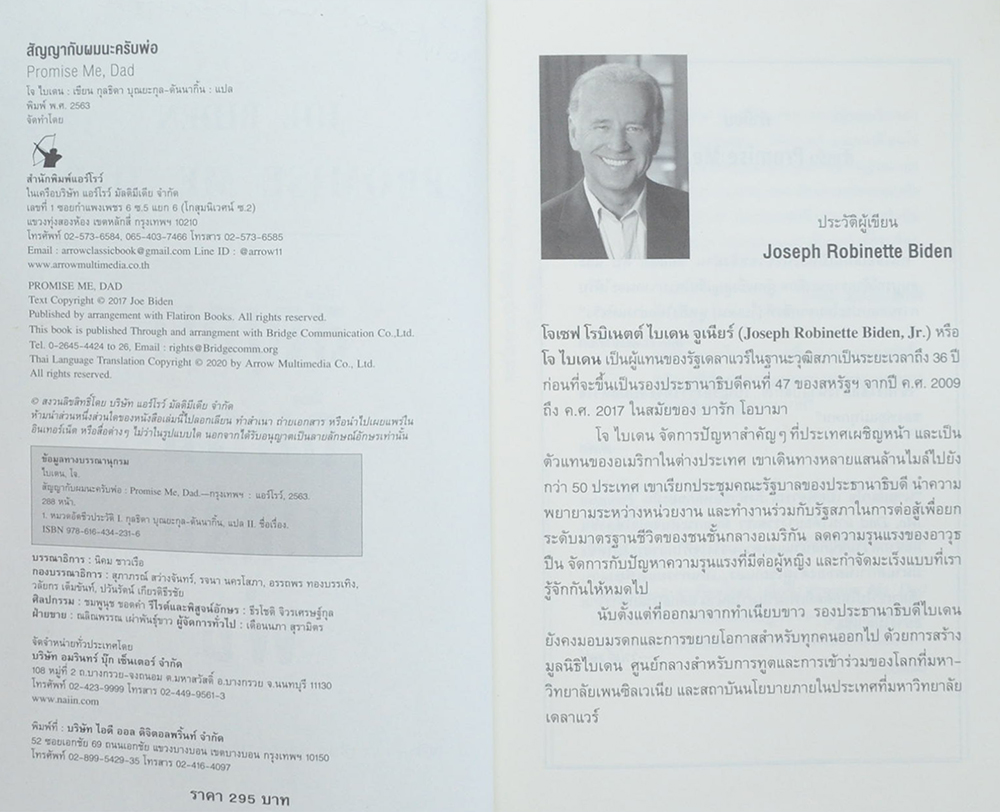 สัญญากับผมนะครับพ่อ
Promise Me, Dad
โจ ไบเดน : เขียน กุลธิดา บุณยะกุล-ดันนากิ้น : แปล
พิมพ์ พ.ศ. 2563
จัดทำโดย
สำนักพิมพ์แอร์โรว์
ในเครือบริษัท แอร์โรว์ มัลติมีเดีย จำกัด
เลขที่ 1 ซอยกำแพงเพชร 6 ซ.5 แยก 6 (โกสุมนิเวศน์ ซ.2)
แขวงทุ่งสองห้อง เขตหลักสี่ กรุงเทพฯ 10210
โทรศัพท์ 02-573-6584, 065-403-7466 โทรสาร 02-573-6585
Email : arrowclassicbook@gmail.com Line ID : @arrow11
www.arrowmultimedia.co.th
PROMISE ME, DAD
Text Copyright © 2017 Joe Biden
Published by arrangement with Flatiron Books. All rights reserved.
This book is published Through and arrangment with Bridge Communication Co.,Ltd.
Tel. 0-2645-4424 to 26, Email : rights@Bridgecomm.org
Thai Language Translation Copyright © 2020 by Arrow Multimedia Co., Ltd.
All rights reserved.
© สงวนลิขสิทธิ์โดย บริษัท แอร์โรว์ มัลติมีเดีย จำกัด
ห้ามนำส่วนหนึ่งส่วนใดของหนังสือเล่มนี้ไปลอกเลียน ทำสำเนา ถ่ายเอกสาร หรือนำไปเผยแพร่ใน
อินเทอร์เน็ต หรือสื่อต่างๆ ไม่ว่าในรูปแบบใด นอกจากได้รับอนุญาตเป็นลายลักษณ์อักษรเท่านั้น
ข้อมูลทางบรรณานุกรม
ไบเดน, โจ.
สัญญากับผมนะครับพ่อ : Promise Me, Dad.—กรุงเทพฯ : แอร์โรว์, 2563.
288 หน้า.
1. หมวดอัตชีวประวัติ I. กุลธิดา บุณยะกุล-ดันนากิ้น, แปล II. ชื่อเรื่อง.
ISBN 978-616-434-231-6
บรรณาธิการ : นิคม ชาวเรือ
กองบรรณาธิการ : สุภาภรณ์ สว่างจันทร์, รจนา นครโสภา, อรรถพร ทองบรรเทิง,
วลัยกร เต็มขันท์, ปวันรัตน์ เกียรติธีรชัย
ศิลปกรรม : ชมพูนุช ยอดคำ รีไรต์และพิสูจน์อักษร : ธีรโชติ จิวรเศรษฐ์กุล
ฝ่ายขาย : ณลิณพรรณ เผ่าพันธุ์ขาว ผู้จัดการทั่วไป : เตือนนภา สุรามิตร
จัดจำหน่ายทั่วประเทศโดย
บริษัท อมรินทร์ บุ๊ก เซ็นเตอร์ จำกัด
108 หมู่ที่ 2 ถ.บางกรวย-จงถนอม ต.มหาสวัสดิ์ อ.บางกรวย จ.นนทบุรี 11130
โทรศัพท์ 02-423-9999 โทรสาร 02-449-9561-3
www.naiin.com
พิมพ์ที่ : บริษัท ไอดี ออล ดิจิตอลพริ้นท์ จำกัด
52 ซอยเอกชัย 69 ถนนเอกชัย แขวงบางบอน เขตบางบอน กรุงเทพฯ 10150
โทรศัพท์ 02-899-5429-35 โทรสาร 02-416-4097
ราคา 295 บาท
ประวัติผู้เขียน
Joseph Robinette Biden
โจเซฟ โรบิเนตต์ ไบเดน จูเนียร์ (Joseph Robinette Biden, Jr.) หรือ
โจ ไบเดน เป็นผู้แทนของรัฐเดลาแวร์ในฐานะวุฒิสภาเป็นระยะเวลาถึง 36 ปี
ก่อนที่จะขึ้นเป็นรองประธานาธิบดีคนที่ 47 ของสหรัฐฯ จากปี ค.ศ. 2009
ถึง ค.ศ. 2017 ในสมัยของ บารัก โอบามา
โจ ไบเดน จัดการปัญหาสำคัญๆ ที่ประเทศเผชิญหน้า และเป็น
ตัวแทนของอเมริกาในต่างประเทศ เขาเดินทางหลายแสนล้านไมล์ไปยัง
กว่า 50 ประเทศ เขาเรียกประชุมคณะรัฐบาลของประธานาธิบดี นำความ
พยายามระหว่างหน่วยงาน และทำงานร่วมกับรัฐสภาในการต่อสู้เพื่อยก
ระดับมาตรฐานชีวิตของชนชั้นกลางอเมริกัน ลดความรุนแรงของอาวุธ
ปืน จัดการกับปัญหาความรุนแรงที่มีต่อผู้หญิง และกำจัดมะเร็งแบบที่เรา
รู้จักกันให้หมดไป
นับตั้งแต่ที่ออกมาจากทำเนียบขาว รองประธานาธิบดีไบเดน
ยังคงมอบมรดกและการขยายโอกาสสำหรับทุกคนออกไป ด้วยการสร้าง
มูลนิธิไบเดน ศูนย์กลางสำหรับการทูตและการเข้าร่วมของโลกที่มหา-
วิทยาลัยเพนซิลเวเนีย และสถาบันนโยบายภายในประเทศที่มหาวิทยาลัย
เดลาแวร์